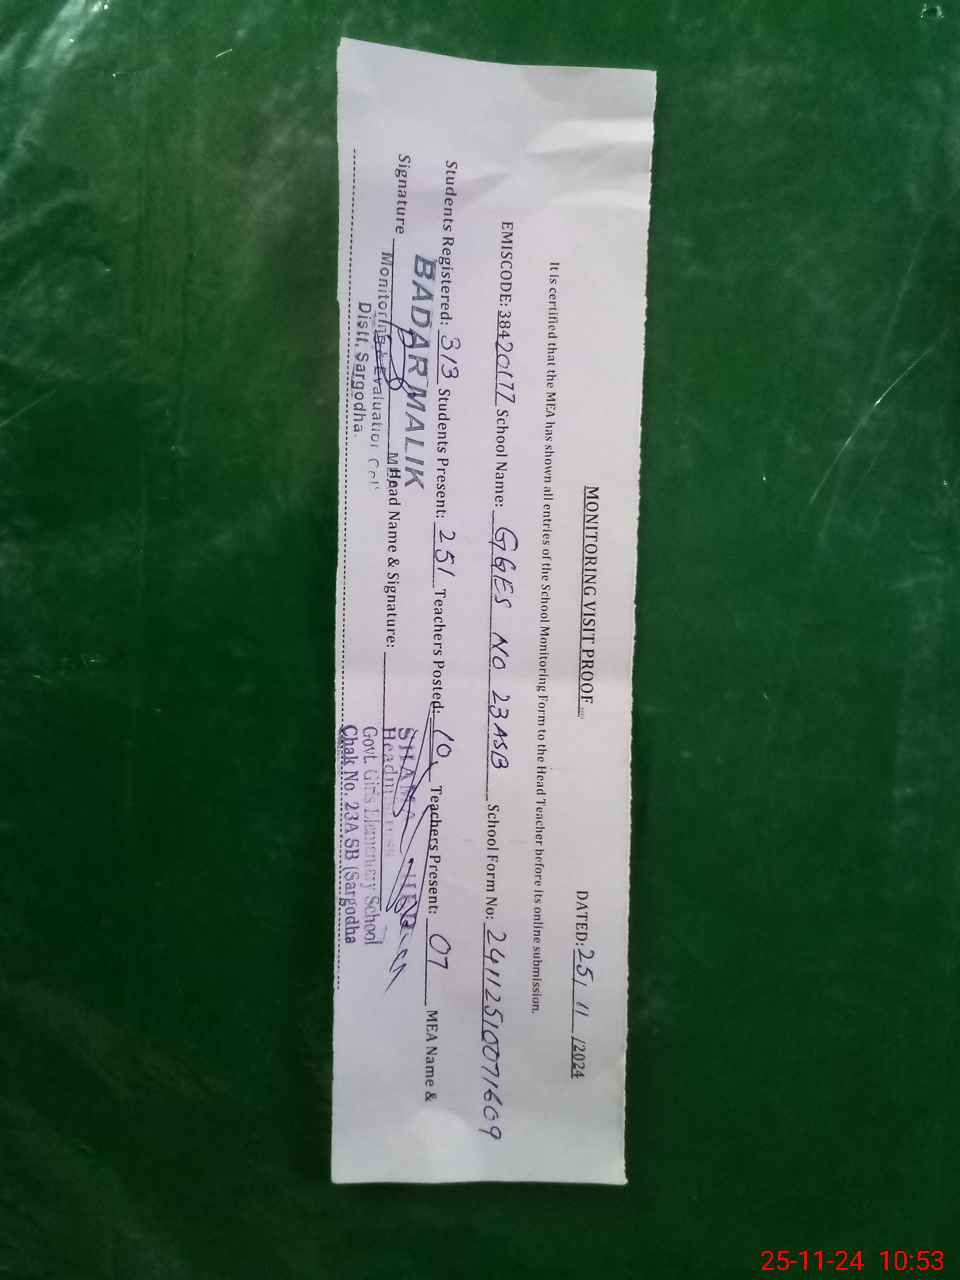 MONITORING VISIT PROOF
DATED: 25/11/2024
It is certified that the MEA has shown all entries of the School Monitoring Form to the Head Teacher before its online submission.
EMISCODE: 38420177 School Name: GGES NO 23ASB School Form No: 241125100071609
Students Registered: 313 Students Present: 251 Teachers Posted: 10 Teachers Present: 07 MEA Name &
BADAR MALIK
Signature Head Name & Signature:
Monitoring & Evaluation Cell
Distt. Sargodha.
SHAMA
Headmistress
Govt. Girls Elementary School
Chak No. 23A SB (Sargodha
25-11-24 10:53